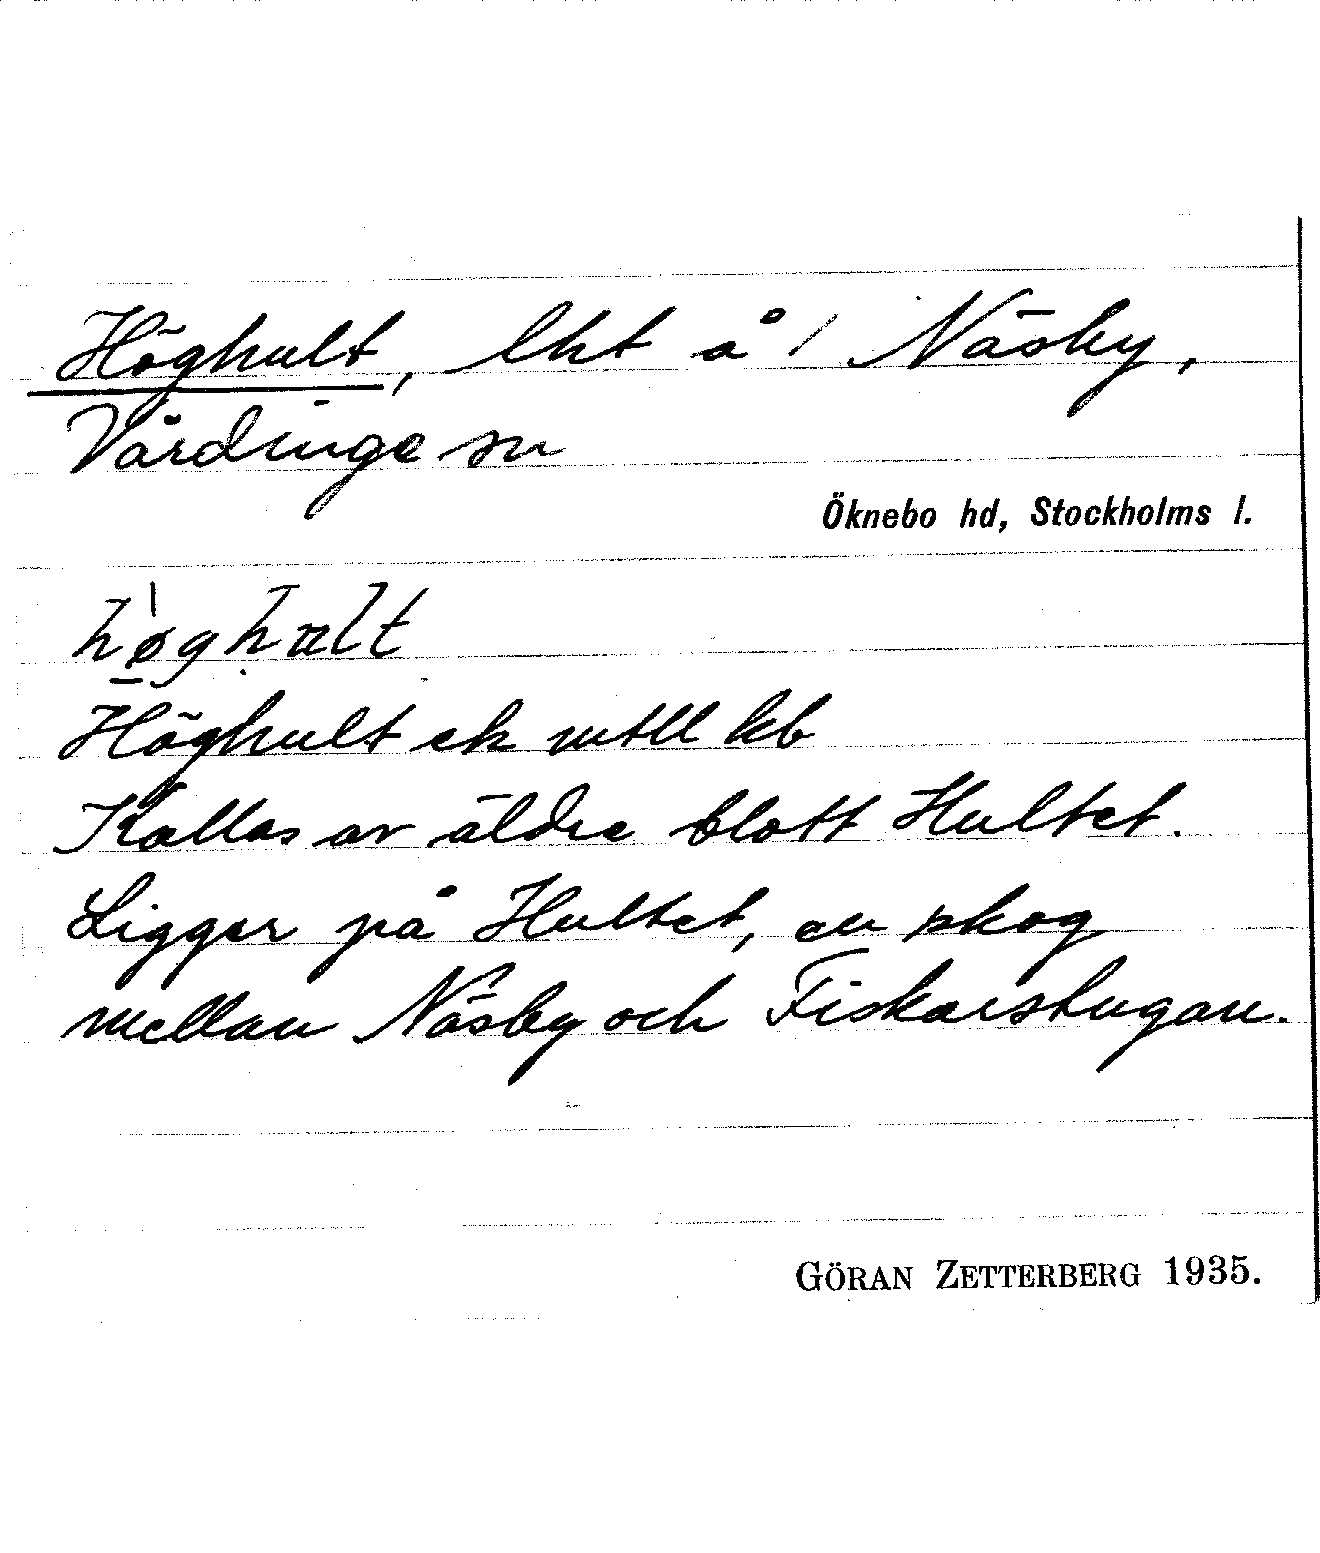 Höghult, lht å / Näsby,
Vårdinge sn
Öknebo hd, Stockholms l.
høghult
Höghult ek mtll kb
Kallas av äldre blott Hultet.
Ligger på Hultet, en skog
mellan Näsby och Fiskarstugan.
GÖRAN ZETTERBERG 1935.